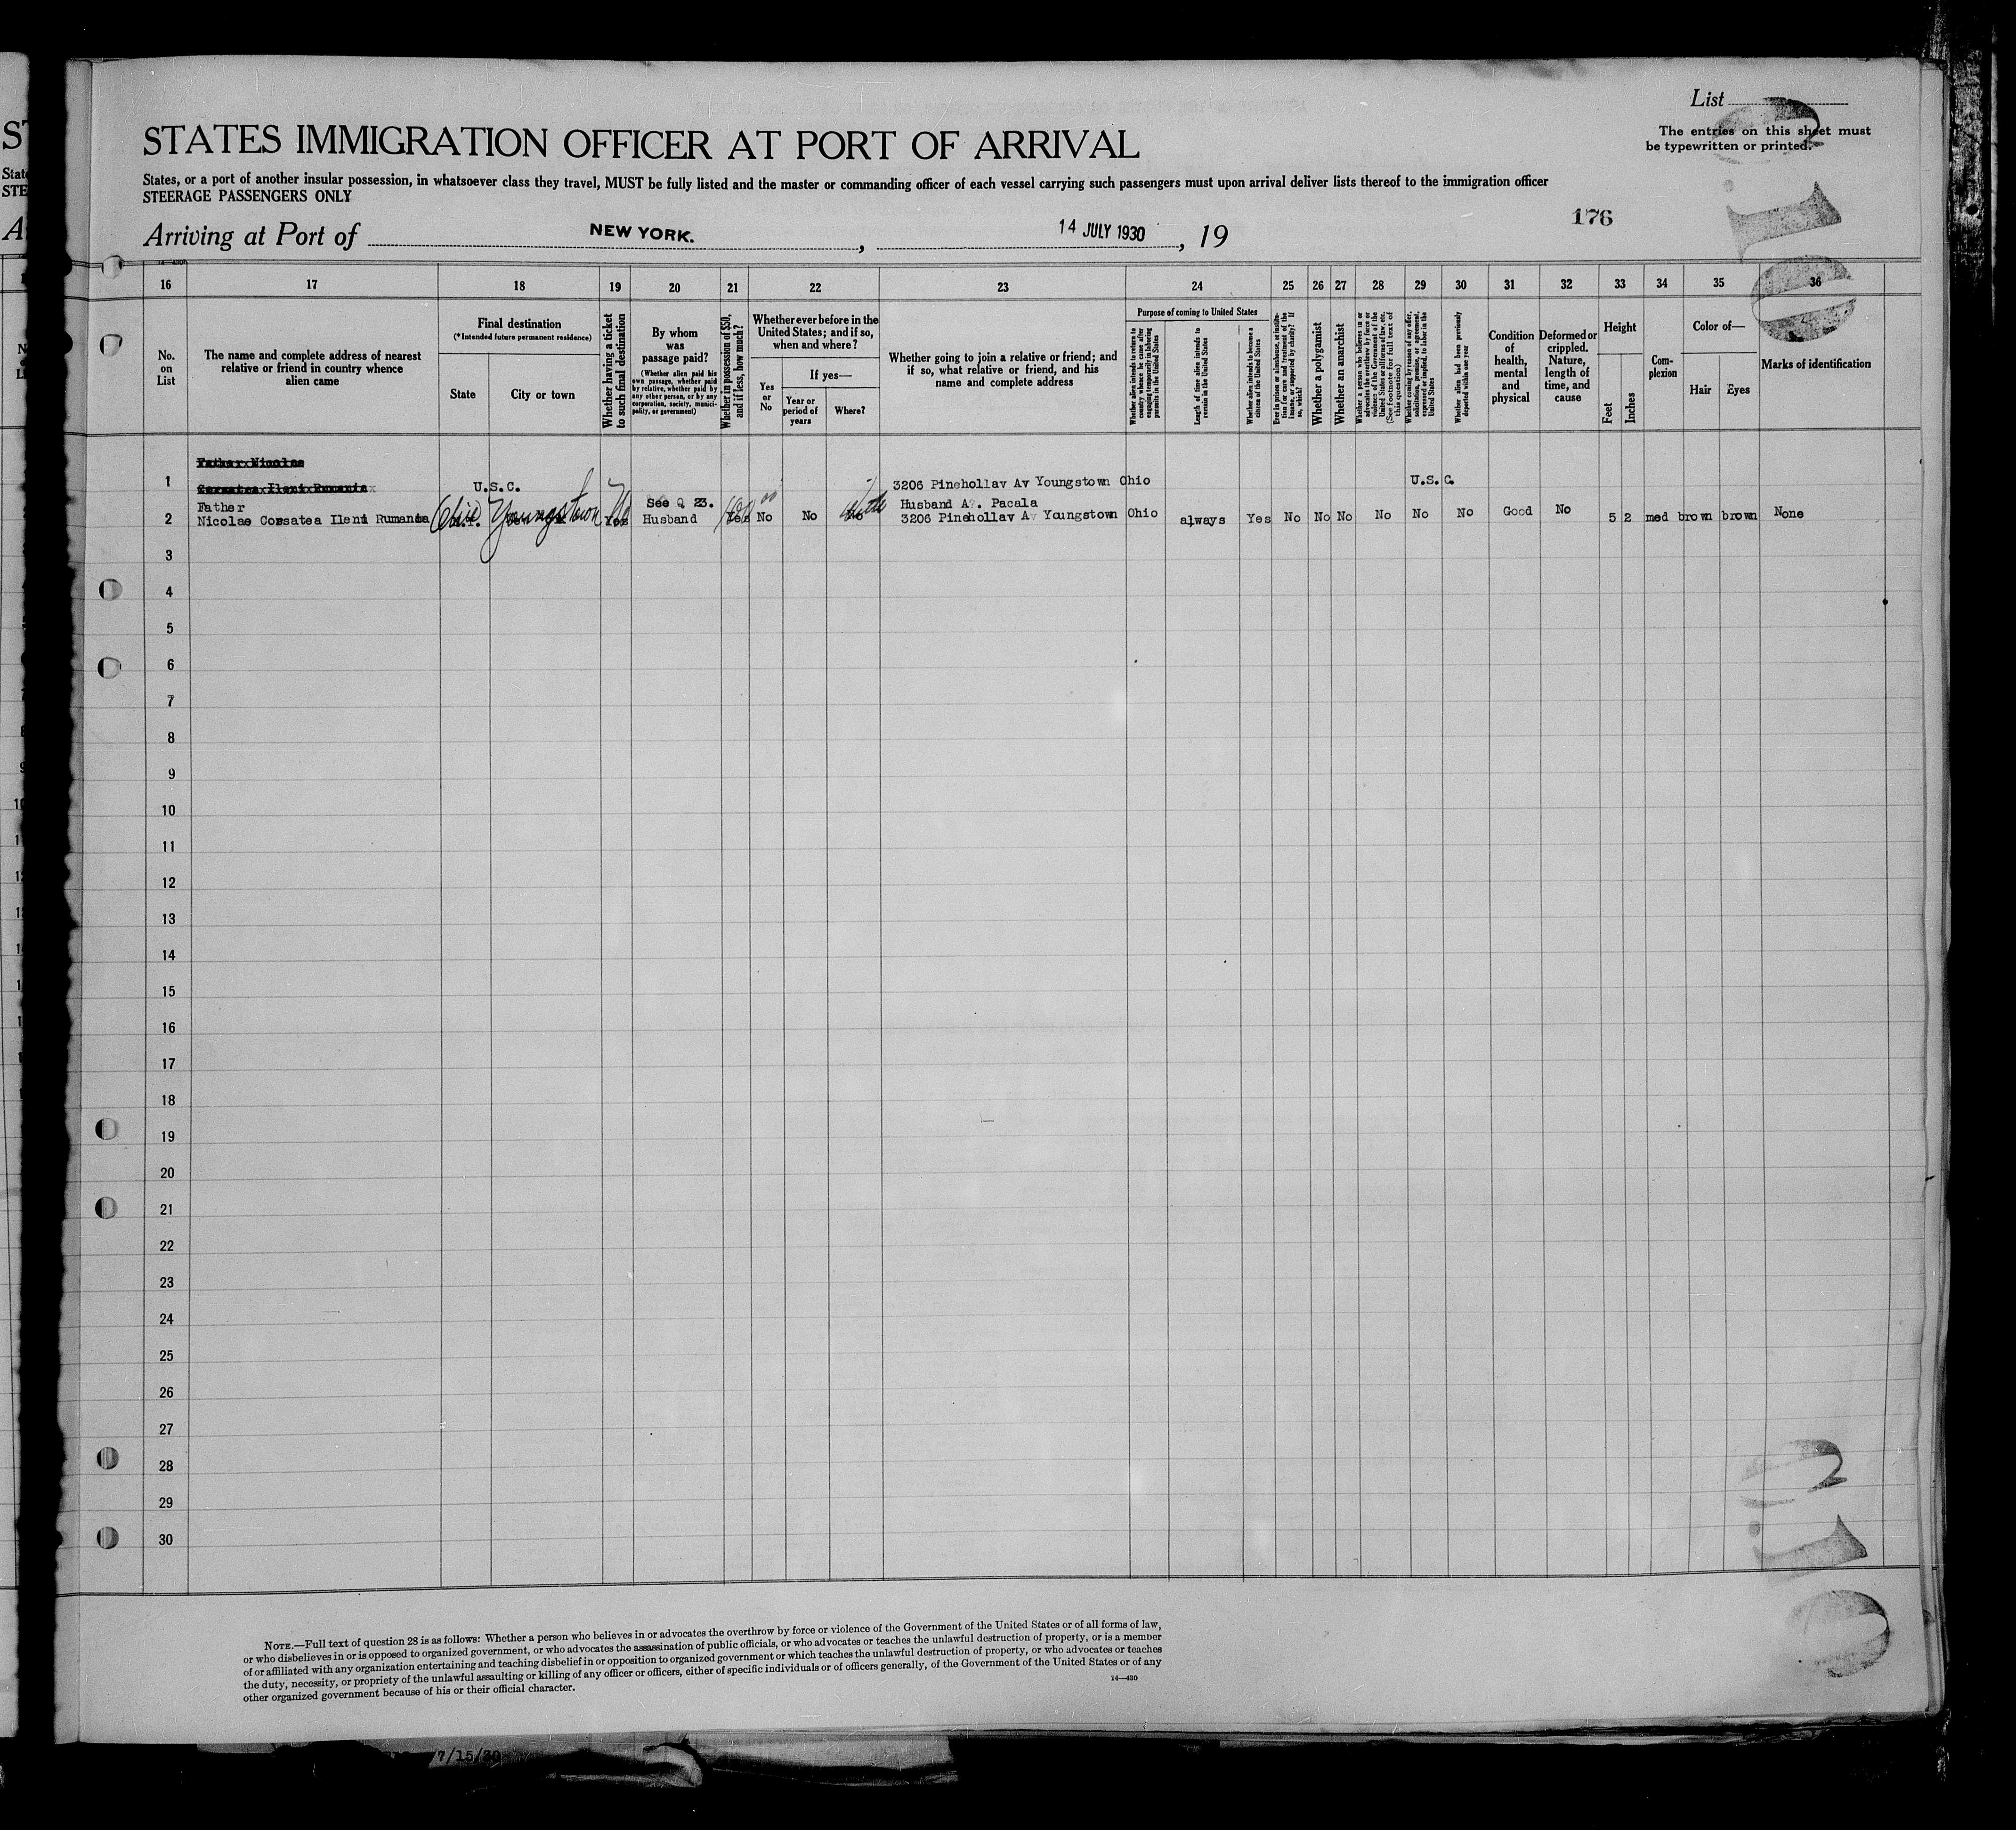 List
The entries on this sheet must
be typewritten or printed.
STATES IMMIGRATION OFFICER AT PORT OF ARRIVAL
States, or a port of another insular possession, in whatsoever class they travel, MUST be fully listed and the master or commanding officer of each vessel carrying such passengers must upon arrival deliver lists thereof to the immigration officer
STEERAGE PASSENGERS ONLY
176
Arriving at Port of NEW YORK. , 14 JULY 1930 , 19
16 17 18 19 20 21 22 23 24 25 26 27 28 29 30 31 32 33 34 35 36
No.
on
List
The name and complete address of nearest
relative or friend in country whence
alien came
Final destination
(*Intended future permanent residence)
State
City or town
Whether having a ticket
to such final destination
By whom
was
passage paid?
(Whether alien paid his
own passage, whether paid
by relative, whether paid by
any other person, or by any
corporation, society, munici-
pality, or government)
Whether in possession of $50,
and if less, how much?
Whether ever before in the
United States; and if so,
when and where?
Yes
or
No
If yes—
Year or
period of
years
Where?
Whether going to join a relative or friend; and
if so, what relative or friend, and his
name and complete address
Purpose of coming to United States
Whether alien intends to return to
country whence he came after
engaging temporarily in laboring
pursuits in the United States
Length of time alien intends to
remain in the United States
Whether alien intends to become a
citizen of the United States
Ever in prison or almshouse, or institu-
tion for care and treatment of the
insane, or supported by charity? If
so, which?
Whether a polygamist
Whether an anarchist
Whether a person who believes in or
advocates the overthrow by force or
violence of the Government of the
United States or all forms of law, etc.
(See footnote for full text of
this question)
Whether coming by reason of any offer,
solicitation, promise, or agreement,
expressed or implied, to labor in the
United States
Whether alien had been previously
deported within one year
Condition
of
health,
mental
and
physical
Deformed or
crippled.
Nature,
length of
time, and
cause
Height
Feet
Inches
Com-
plexion
Color of—
Hair
Eyes
Marks of identification
Father Nicolae
1 Corsatea Ileni Rumania U.S.C. 3206 Pinehollav Av Youngstown Ohio U.S.C.
Father See Q 23. Husband A. Pacala
2 Nicolae Corsatea Ileni Rumania Ohio Youngstown Yes Husband Yes No No No 3206 Pinehollav Av Youngstown Ohio always Yes No No No No No No Good No 5 2 med brown brown None
3
4
5
6
7
8
9
10
11
12
13
14
15
16
17
18
19
20
21
22
23
24
25
26
27
28
29
30
NOTE.—Full text of question 28 is as follows: Whether a person who believes in or advocates the overthrow by force or violence of the Government of the United States or of all forms of law,
or who disbelieves in or is opposed to organized government, or who advocates the assassination of public officials, or who advocates or teaches the unlawful destruction of property, or is a member
of or affiliated with any organization entertaining and teaching disbelief in or opposition to organized government or which teaches the unlawful destruction of property, or who advocates or teaches
the duty, necessity, or propriety of the unlawful assaulting or killing of any officer or officers, either of specific individuals or of officers generally, of the Government of the United States or of any
other organized government because of his or their official character.
14—430
7/15/30